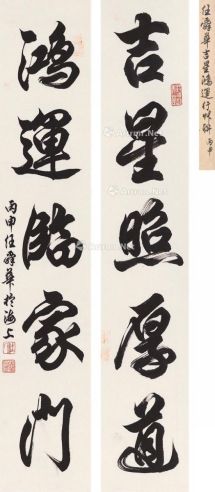 吉星照厚道
鴻運臨家門
丙申任舜華於海上
任舜華吉星鴻運行
丙申
Artron.Net